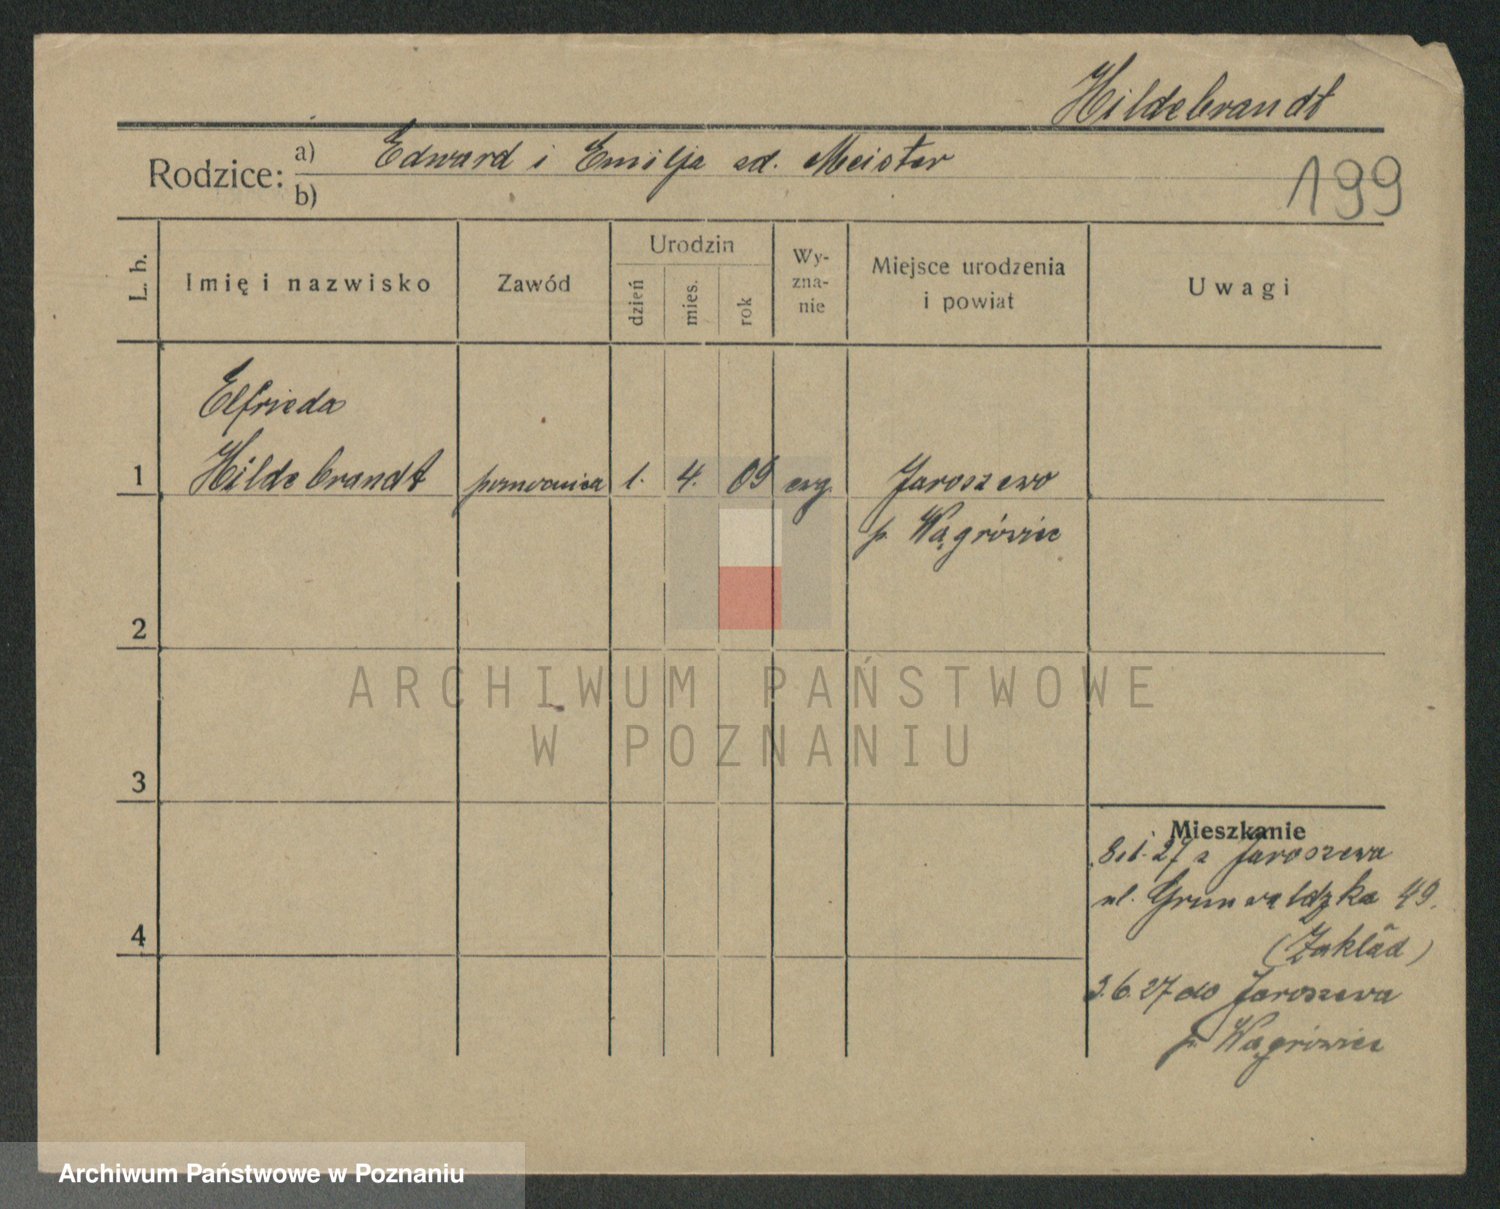 Hildebrandt
Rodzice: a) Edward i Emilja zd. Meister
b)
199
L. b.
Imię i nazwisko
Zawód
Urodzin
dzień
mies.
rok
Wy-
zna-
nie
Miejsce urodzenia
i powiat
Uwagi
Elfrieda
1 Hildebrandt pomocnica 1. 4. 09 ewg. Jaroszewo
p. Wągrówiec
2
3
4
Mieszkanie
8.1.27 z Jaroszewa
ul. Grunwaldzka 49.
(Zakład)
3.6.27 do Jaroszewa
p. Wągrówiec
ARCHIWUM PAŃSTWOWE
W POZNANIU
Archiwum Państwowe w Poznaniu